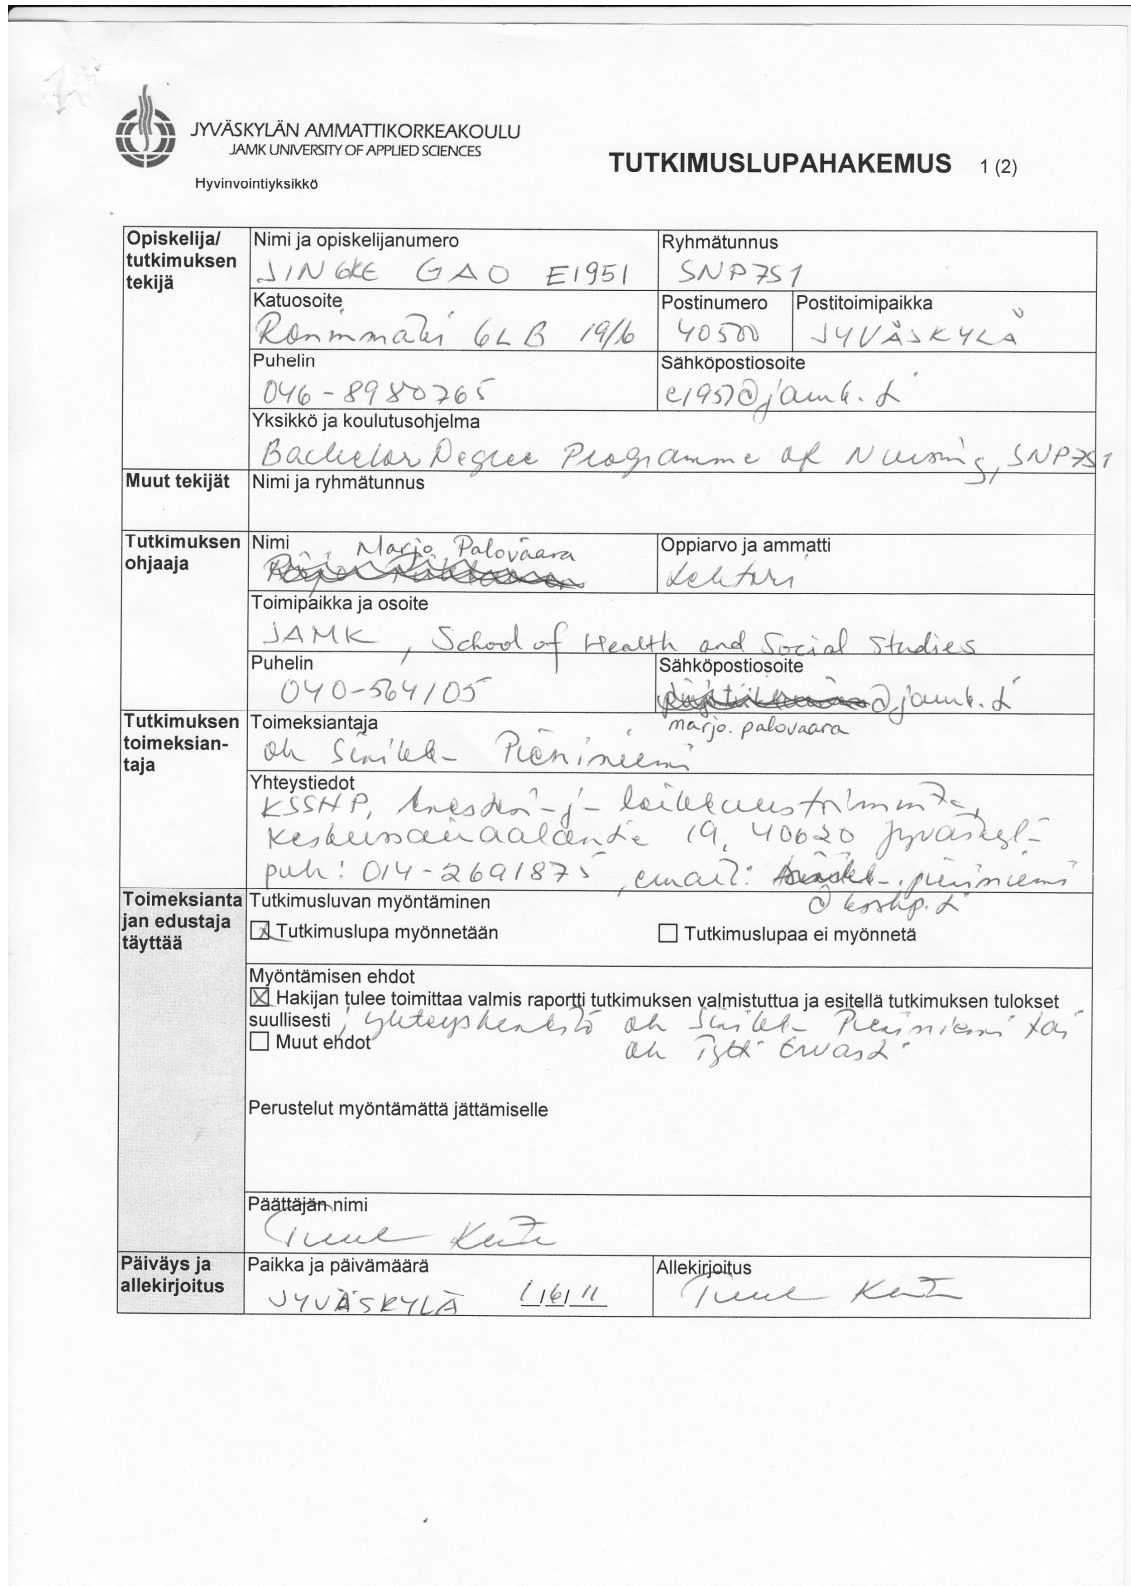 JYVÄSKYLÄN AMMATTIKORKEAKOULU
JAMK UNIVERSITY OF APPLIED SCIENCES
Hyvinvointiyksikkö
TUTKIMUSLUPAHAKEMUS 1 (2)
Opiskelija/
tutkimuksen
tekijä
Nimi ja opiskelijanumero
JINGKE GAO E1951
Ryhmätunnus
SNP7S1
Katuosoite
6 L B 19/6
Postinumero
40500
Postitoimipaikka
JYVÄSKYLÄ
Puhelin
046-8980765
Sähköpostiosoite
e1951@jamk.fi
Yksikkö ja koulutusohjelma
Bachelor Degree Programme of Nursing, SNP7S1
Muut tekijät
Nimi ja ryhmätunnus
Tutkimuksen
ohjaaja
Nimi
Marjo Palovaara
Oppiarvo ja ammatti
Lehtori
Toimipaikka ja osoite
JAMK, School of Health and Social Studies
Puhelin
040-564105
Sähköpostiosoite
@jamk.fi
marjo.palovaara
Tutkimuksen
toimeksian-
taja
Toimeksiantaja
oh Pieniniemi
Yhteystiedot
KSSHP,
19, 40620 Jyväskylä
puh: 014-2691875, email: pieniniemi
@ksshp.fi
Toimeksianta
jan edustaja
täyttää
Tutkimusluvan myöntäminen
Tutkimuslupa myönnetään
Tutkimuslupaa ei myönnetä
Myöntämisen ehdot
Hakijan tulee toimittaa valmis raportti tutkimuksen valmistuttua ja esitellä tutkimuksen tulokset
suullisesti ; yhteyshenkilö oh Pieniniemi tai
Muut ehdot
oh
Perustelut myöntämättä jättämiselle
Päättäjän nimi
Päiväys ja
allekirjoitus
Paikka ja päivämäärä
JYVÄSKYLÄ 1/6/11
Allekirjoitus